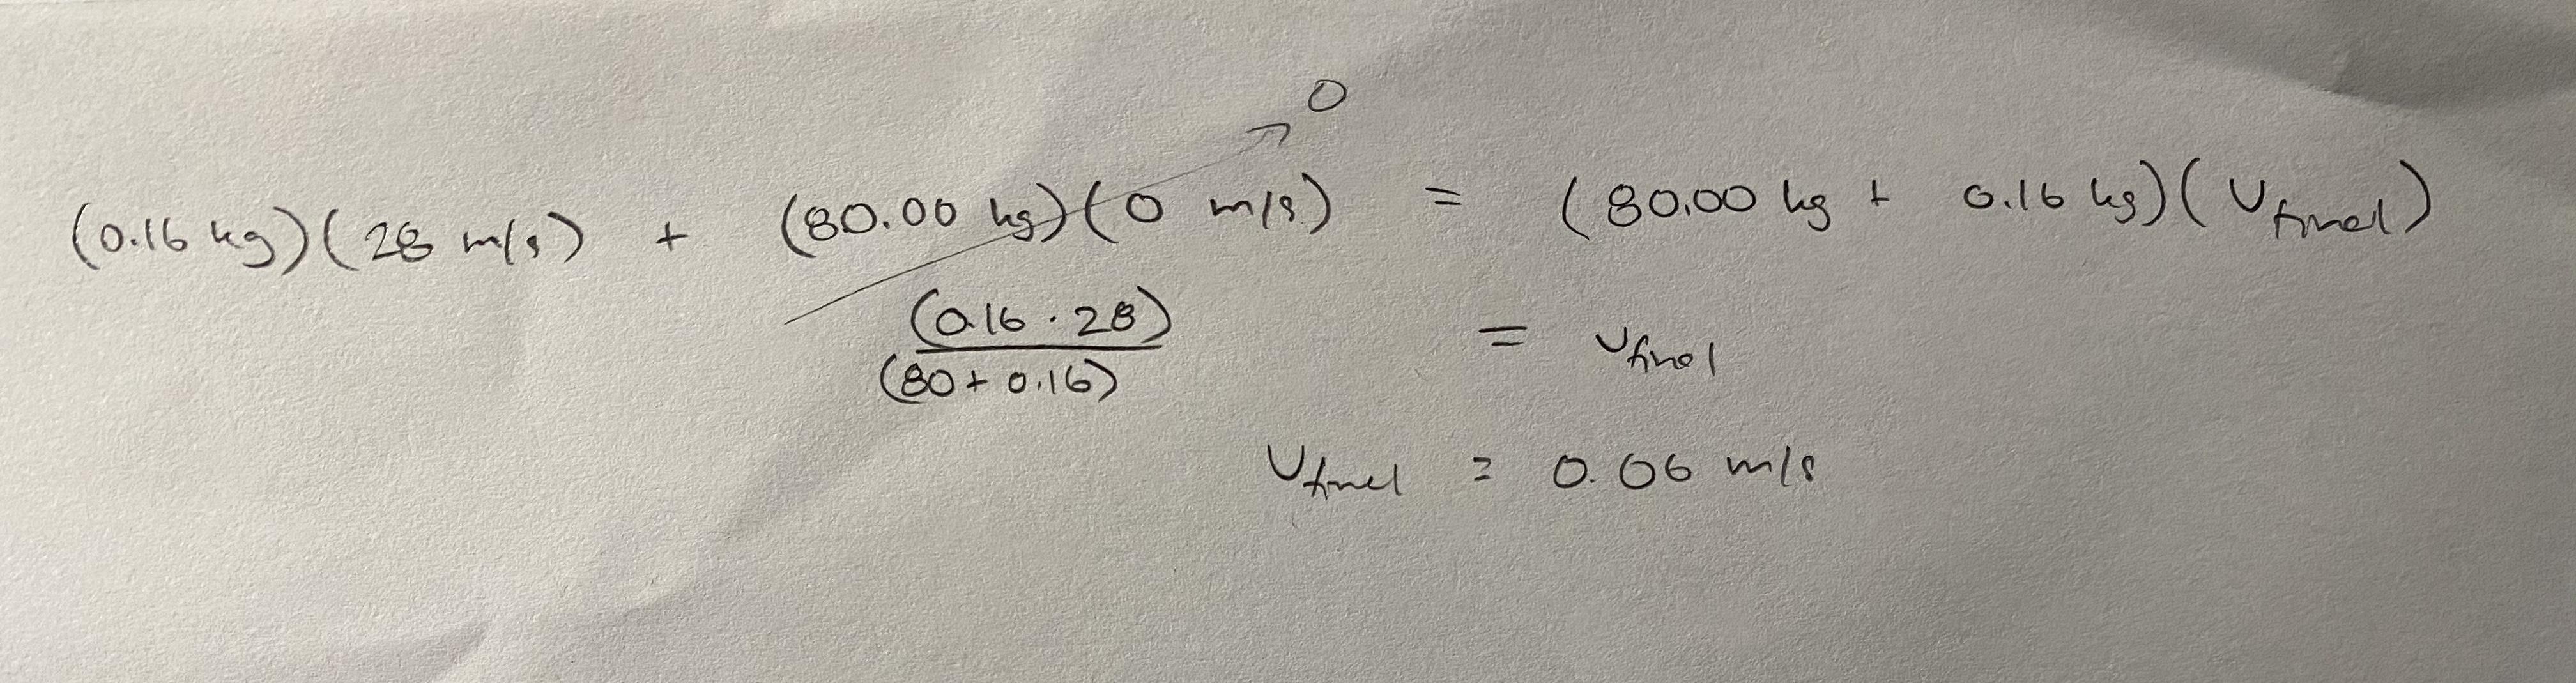 0
(0.16 kg)(28 m/s) + (80.00 kg)(0 m/s) = (80.00 kg + 0.16 kg)(v_final)
(0.16 · 28)/(80 + 0.16) = v_final
v_final = 0.06 m/s